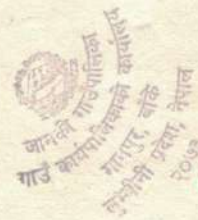 जानकी गाउँपालिका
गाउँ कार्यपालिकाको कार्यालय
गनापुर, बाँके
लुम्बिनी प्रदेश, नेपाल
२०७३